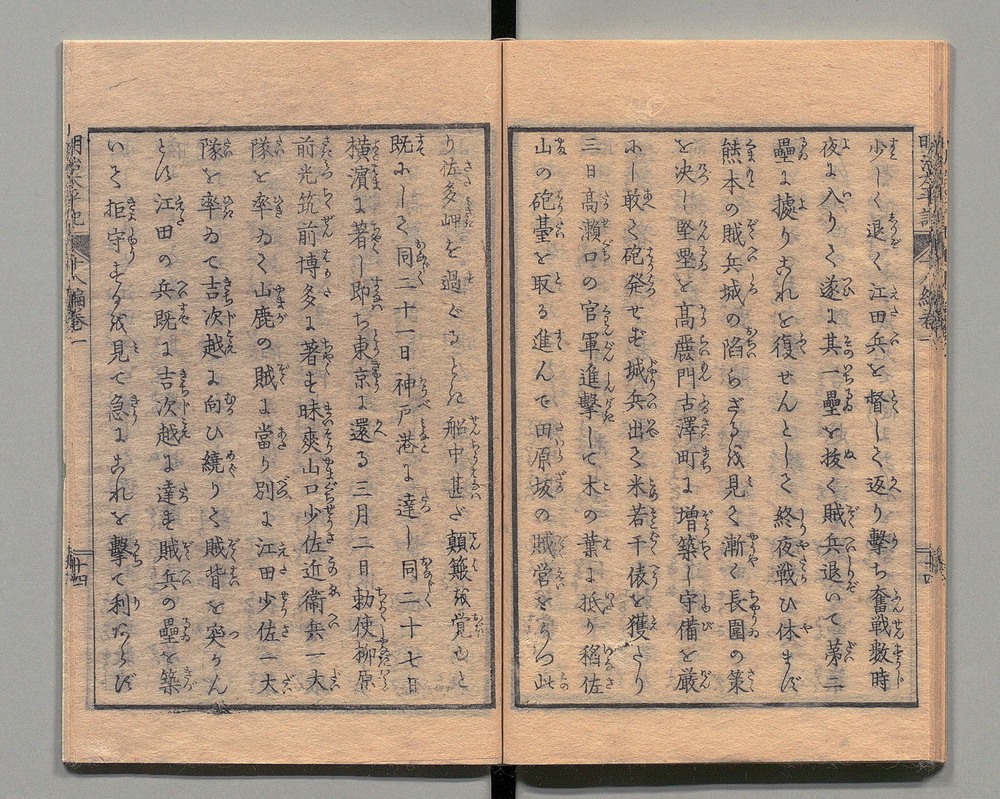 少しく退く江田兵を督しく返り擊ち奮戦数時
夜に入りく遂に其一壘を抜く賊兵退いて第二
壘に據り之れを復せんとして終夜戦ひ休まず
熊本の賊兵城の陷らざるを見く漸く長圍の策
を決し堅壘を高麗門古澤町に増築し守備を厳
にし敢く砲発せず城兵出く米若干俵を獲たり
三日高瀬口の官軍進擊して木の葉に抵り稲佐
山の砲臺を取る進んで田原坂の賊営をうつ此
り佐多岬を過ぐるときに船中甚だ顛簸を覚ゆと
既にして同二十一日神戸港に達し同二十七日
横濱に著し即ち東京に還る三月二日勅使柳原
前光筑前博多に著す昧爽山口少佐近衛兵一大
隊を率ゐく山鹿の賊に當り別に江田少佐一大
隊を率ゐて吉次越に向ひ繞りく賊背を突かん
とす江田の兵既に吉次越に達す賊兵の壘を築
いて拒守するを見て急に之れを擊て利あらず
明治太平記
十八編巻一
十四